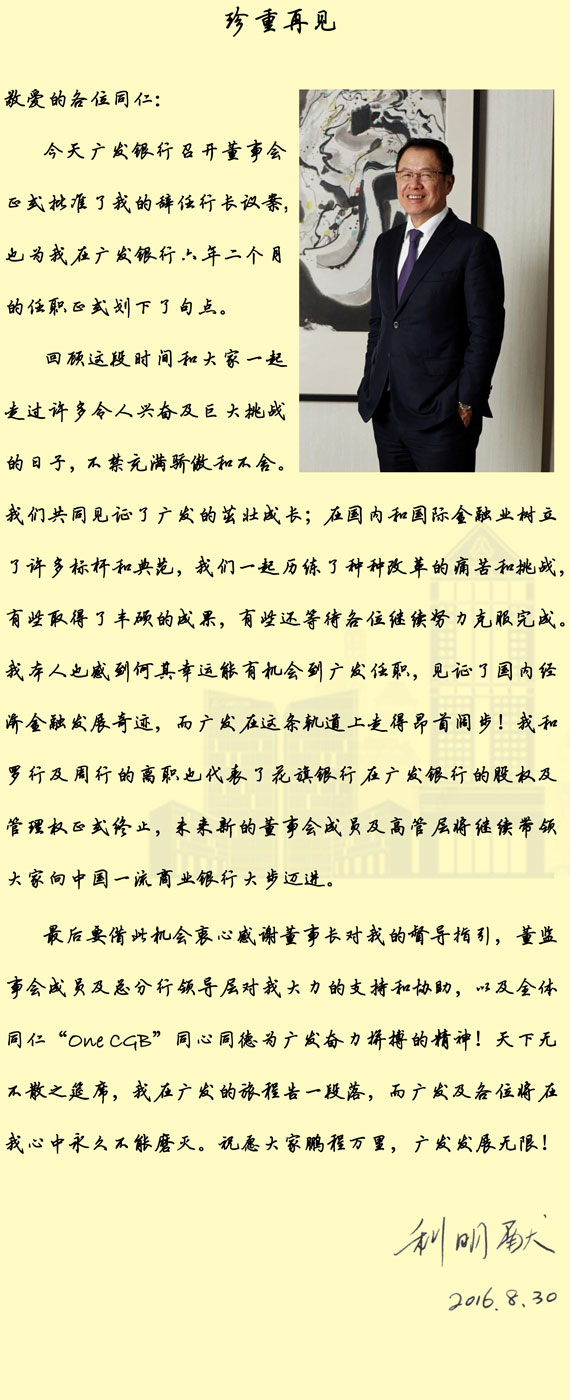 珍重再见
敬爱的各位同仁：
今天广发银行召开董事会
正式批准了我的辞任行长议案，
也为我在广发银行六年二个月
的任职正式划下了句点。
回顾这段时间和大家一起
走过许多令人兴奋及巨大挑战
的日子，不禁充满骄傲和不舍。
我们共同见证了广发的茁壮成长；在国内和国际金融业树立
了许多标杆和典范，我们一起历练了种种改革的痛苦和挑战，
有些取得了丰硕的成果，有些还等待各位继续努力克服完成。
我本人也感到何其幸运能有机会到广发任职，见证了国内经
济金融发展奇迹，而广发在这条轨道上走得昂首阔步！我和
罗行及周行的离职也代表了花旗银行在广发银行的股权及
管理权正式终止，未来新的董事会成员及高管层将继续带领
大家向中国一流商业银行大步迈进。
最后要借此机会衷心感谢董事长对我的督导指引，董监
事会成员及总分行领导层对我大力的支持和协助，以及全体
同仁“One CGB”同心同德为广发奋力拼搏的精神！天下无
不散之筵席，我在广发的旅程告一段落，而广发及各位将在
我心中永久不能磨灭。祝愿大家鹏程万里，广发发展无限！
利明献
2016.8.30